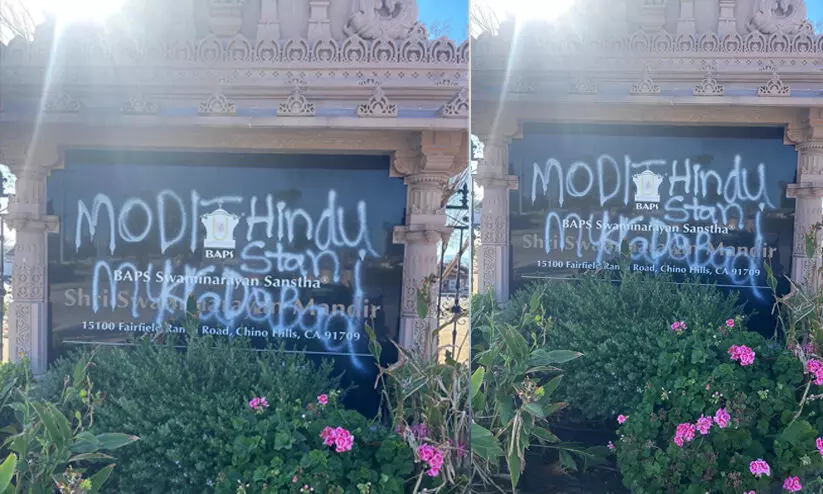 MODI Hindu
Stan
BAPS
MURDABAD
BAPS Swaminarayan Sanstha®
Shri Swaminarayan Mandir
15100 Fairfield Ranch Road, Chino Hills, CA 91709
MODI Hindu
Stan
BAPS
MURDABAD
BAPS Swaminarayan Sanstha®
Shri Swaminarayan Mandir
15100 Fairfield Ranch Road, Chino Hills, CA 91709